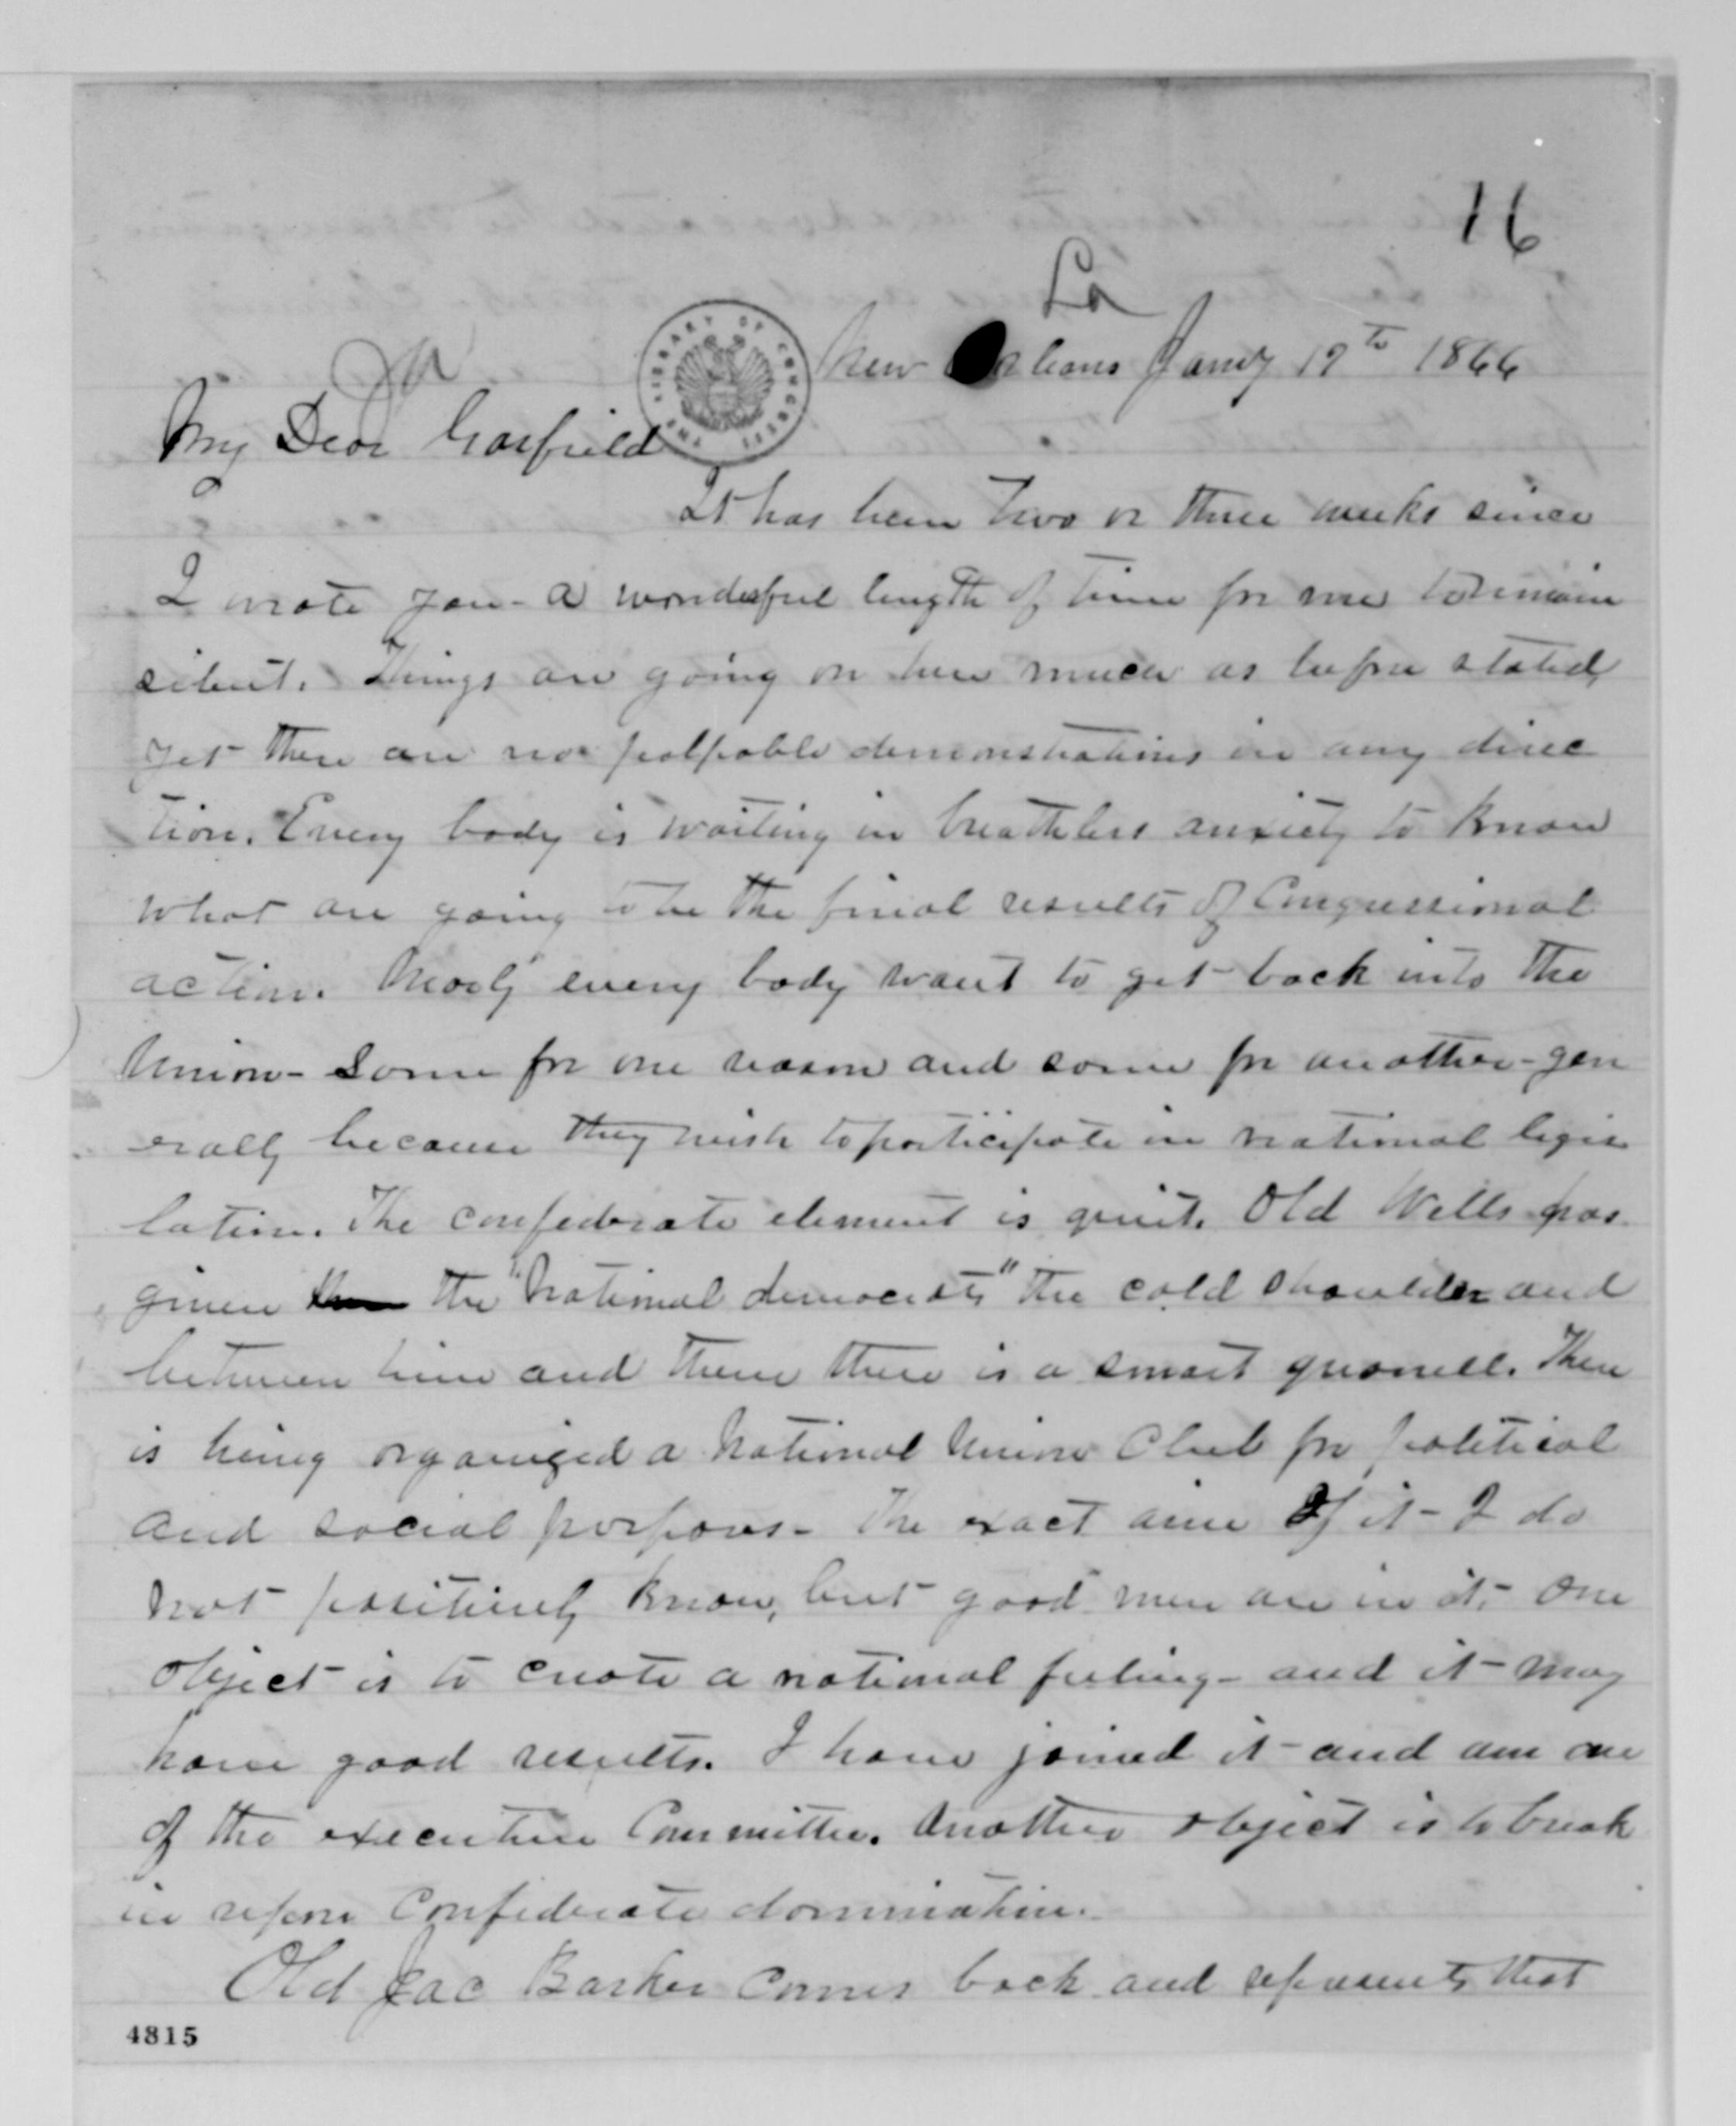 16
La
New Orleans Jany 19th 1866
My Dear Garfield
THE LIBRARY OF CONGRESS
It has been two or three weeks since
I wrote you - a wonderful length of time for me to remain
silent. Things are going on here much as before stated,
yet there are no palpable demonstrations in any direc
tion. Every body is waiting in breathless anxiety to know
what are going to be the final results of Congressional
action. Nearly every body want to get back into the
Union - Some for one reason and some for another - gen
erally because they wish to participate in national legis
lation. The confederate element is quiet. Old Wells has
given the "National democrats" the cold shoulder and
between him and them there is a smart quarrell. There
is being organized a National Union Club for political
and social purposes - The exact aim of it - I do
not positively know, but good men are in it. One
object is to create a national feeling - and it may
have good results. I have joined it and am one
of the executive Committee. Another object is to break
in upon Confederate domination.
Old Jac Barker comes back and represents that
4815